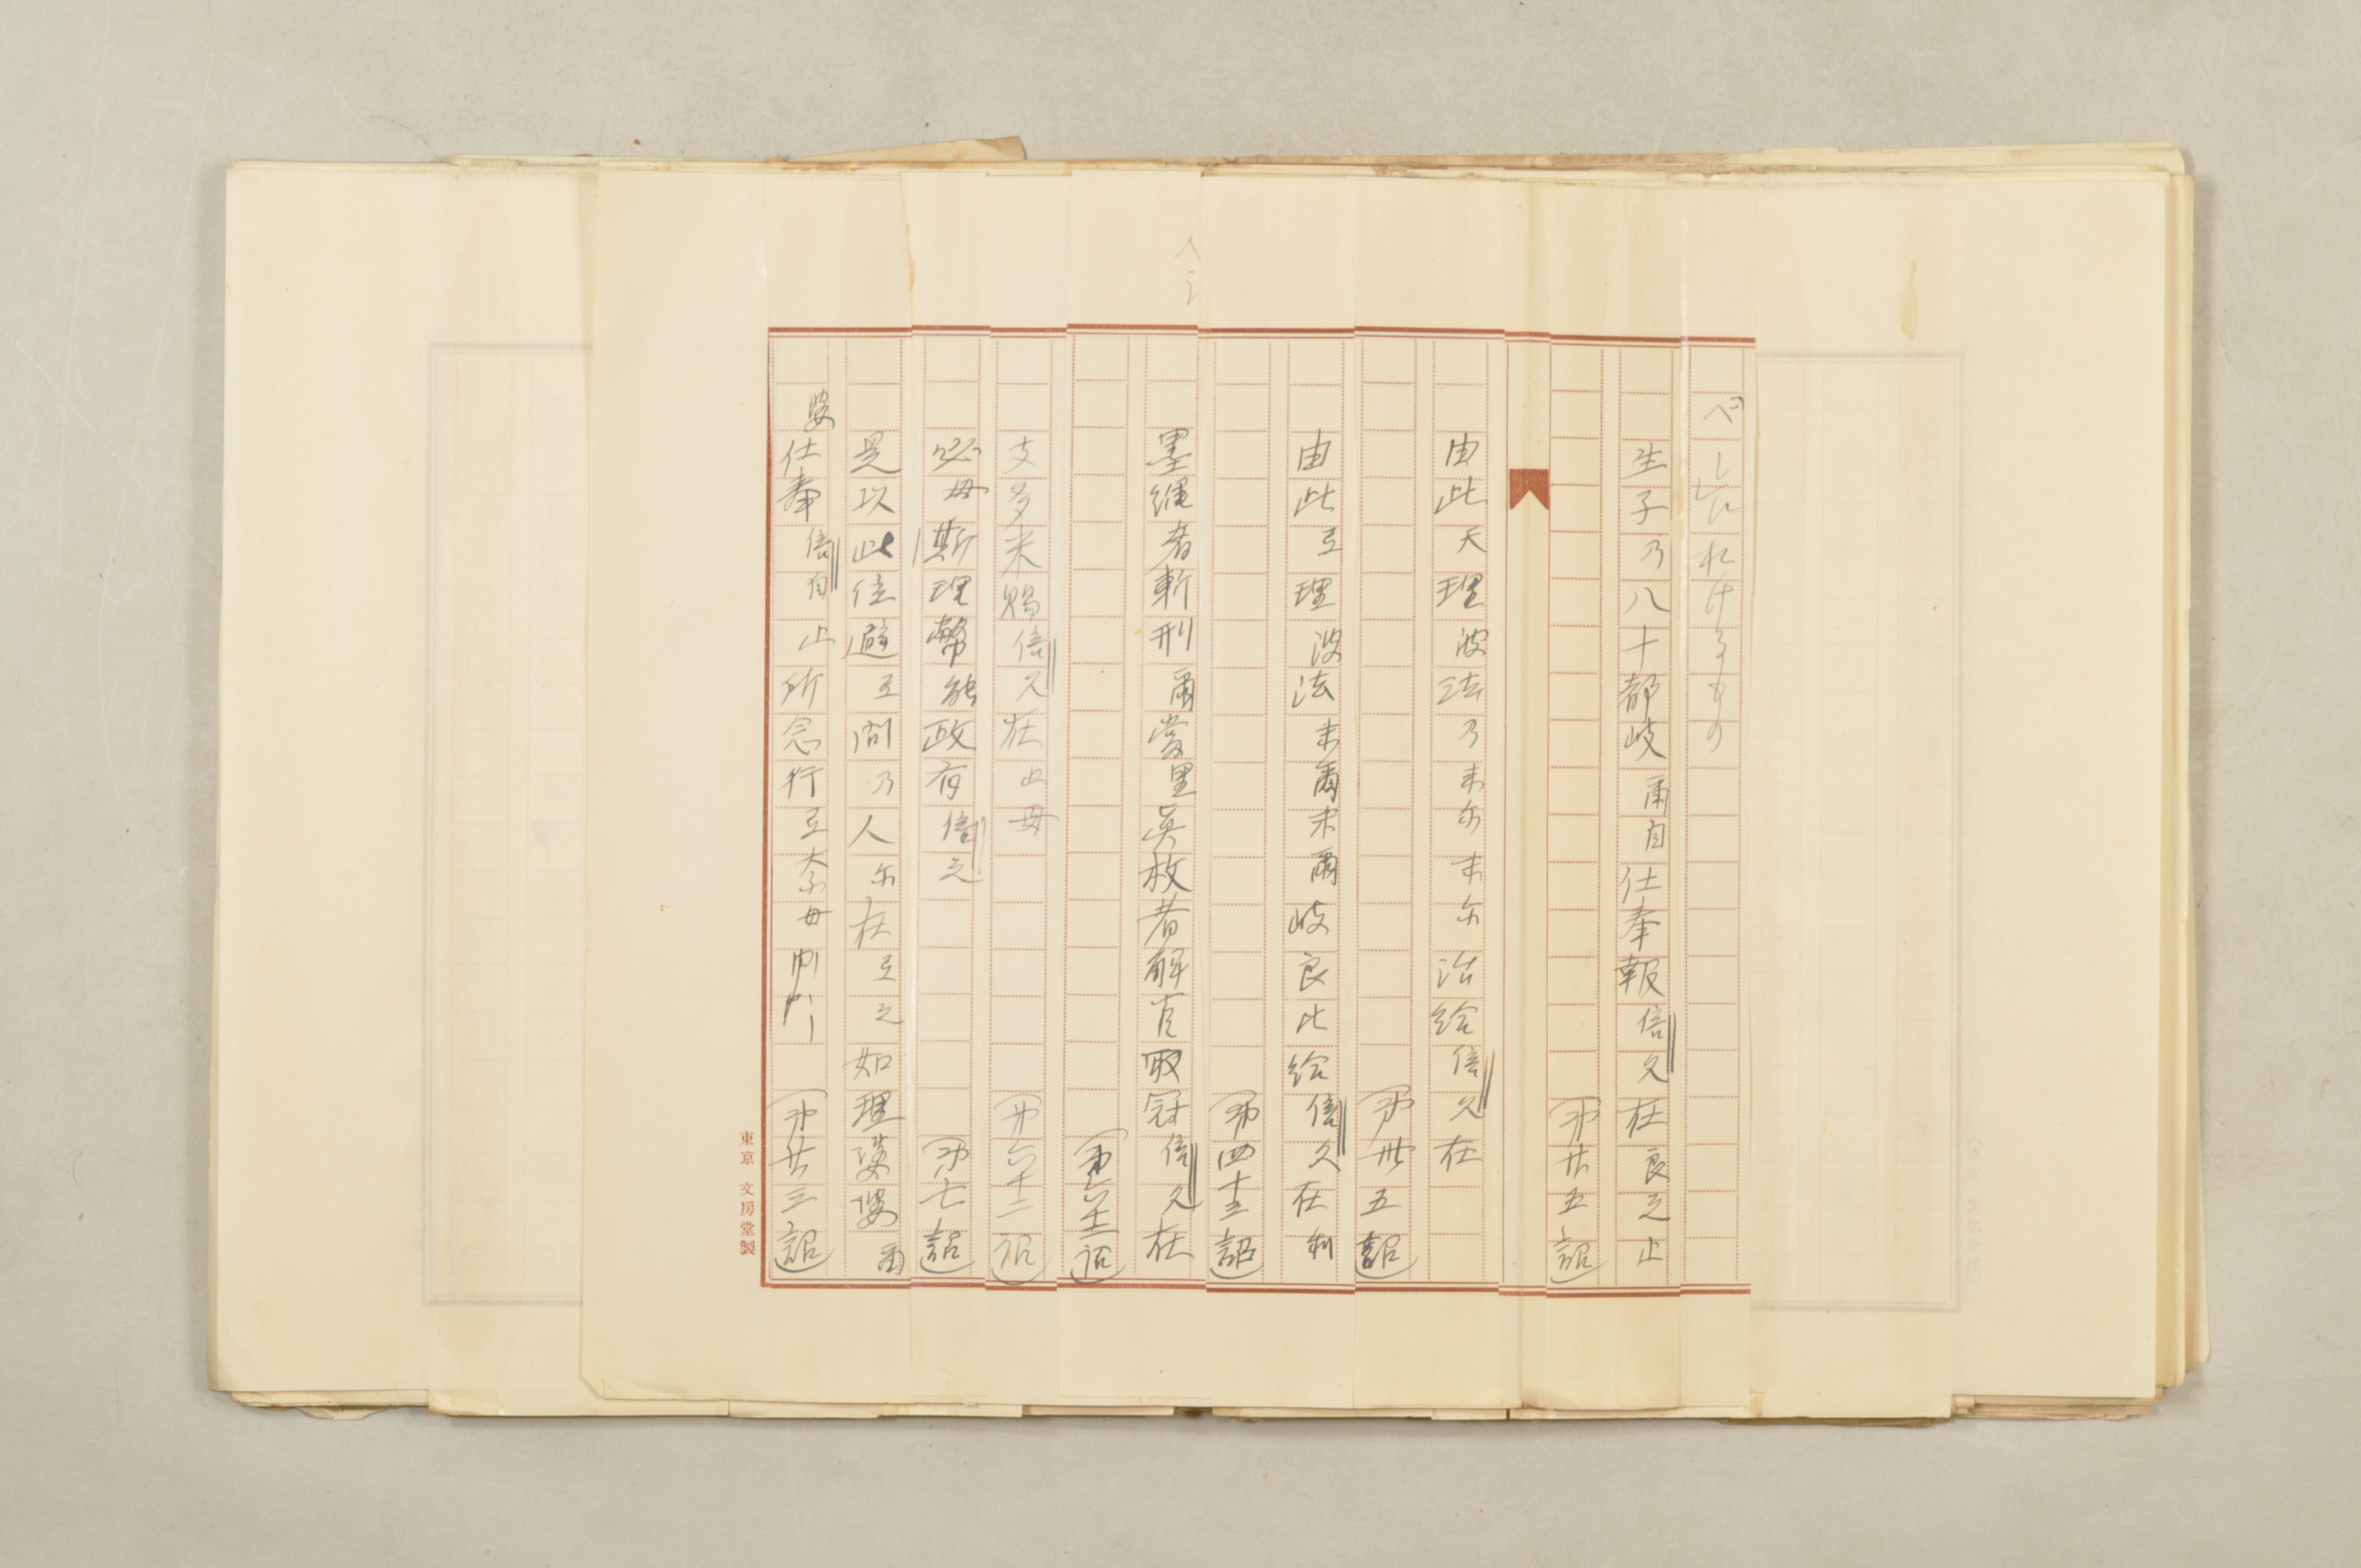 べし点れけるもの
生子乃八十都岐爾自仕奉報倍久在良之止
（第廿五詔）
由此天理波法乃末尓末尓治給倍久在
（第卅五詔）
由此弖理波法末爾末爾岐良比給倍久在利
（第四十三詔）
墨縄者斬刑爾当里真枚者解官取冠倍久在
（第六十二詔）
支多米賜倍久在止毋
（第六十二詔）
必毋斯理幣能政有倍之
（第七詔）
是以此位避弖間乃人尓在弖之如理婆婆爾
婆仕奉倍自止所念行弖奈毋
（第廿三詔）
東京 文房堂製